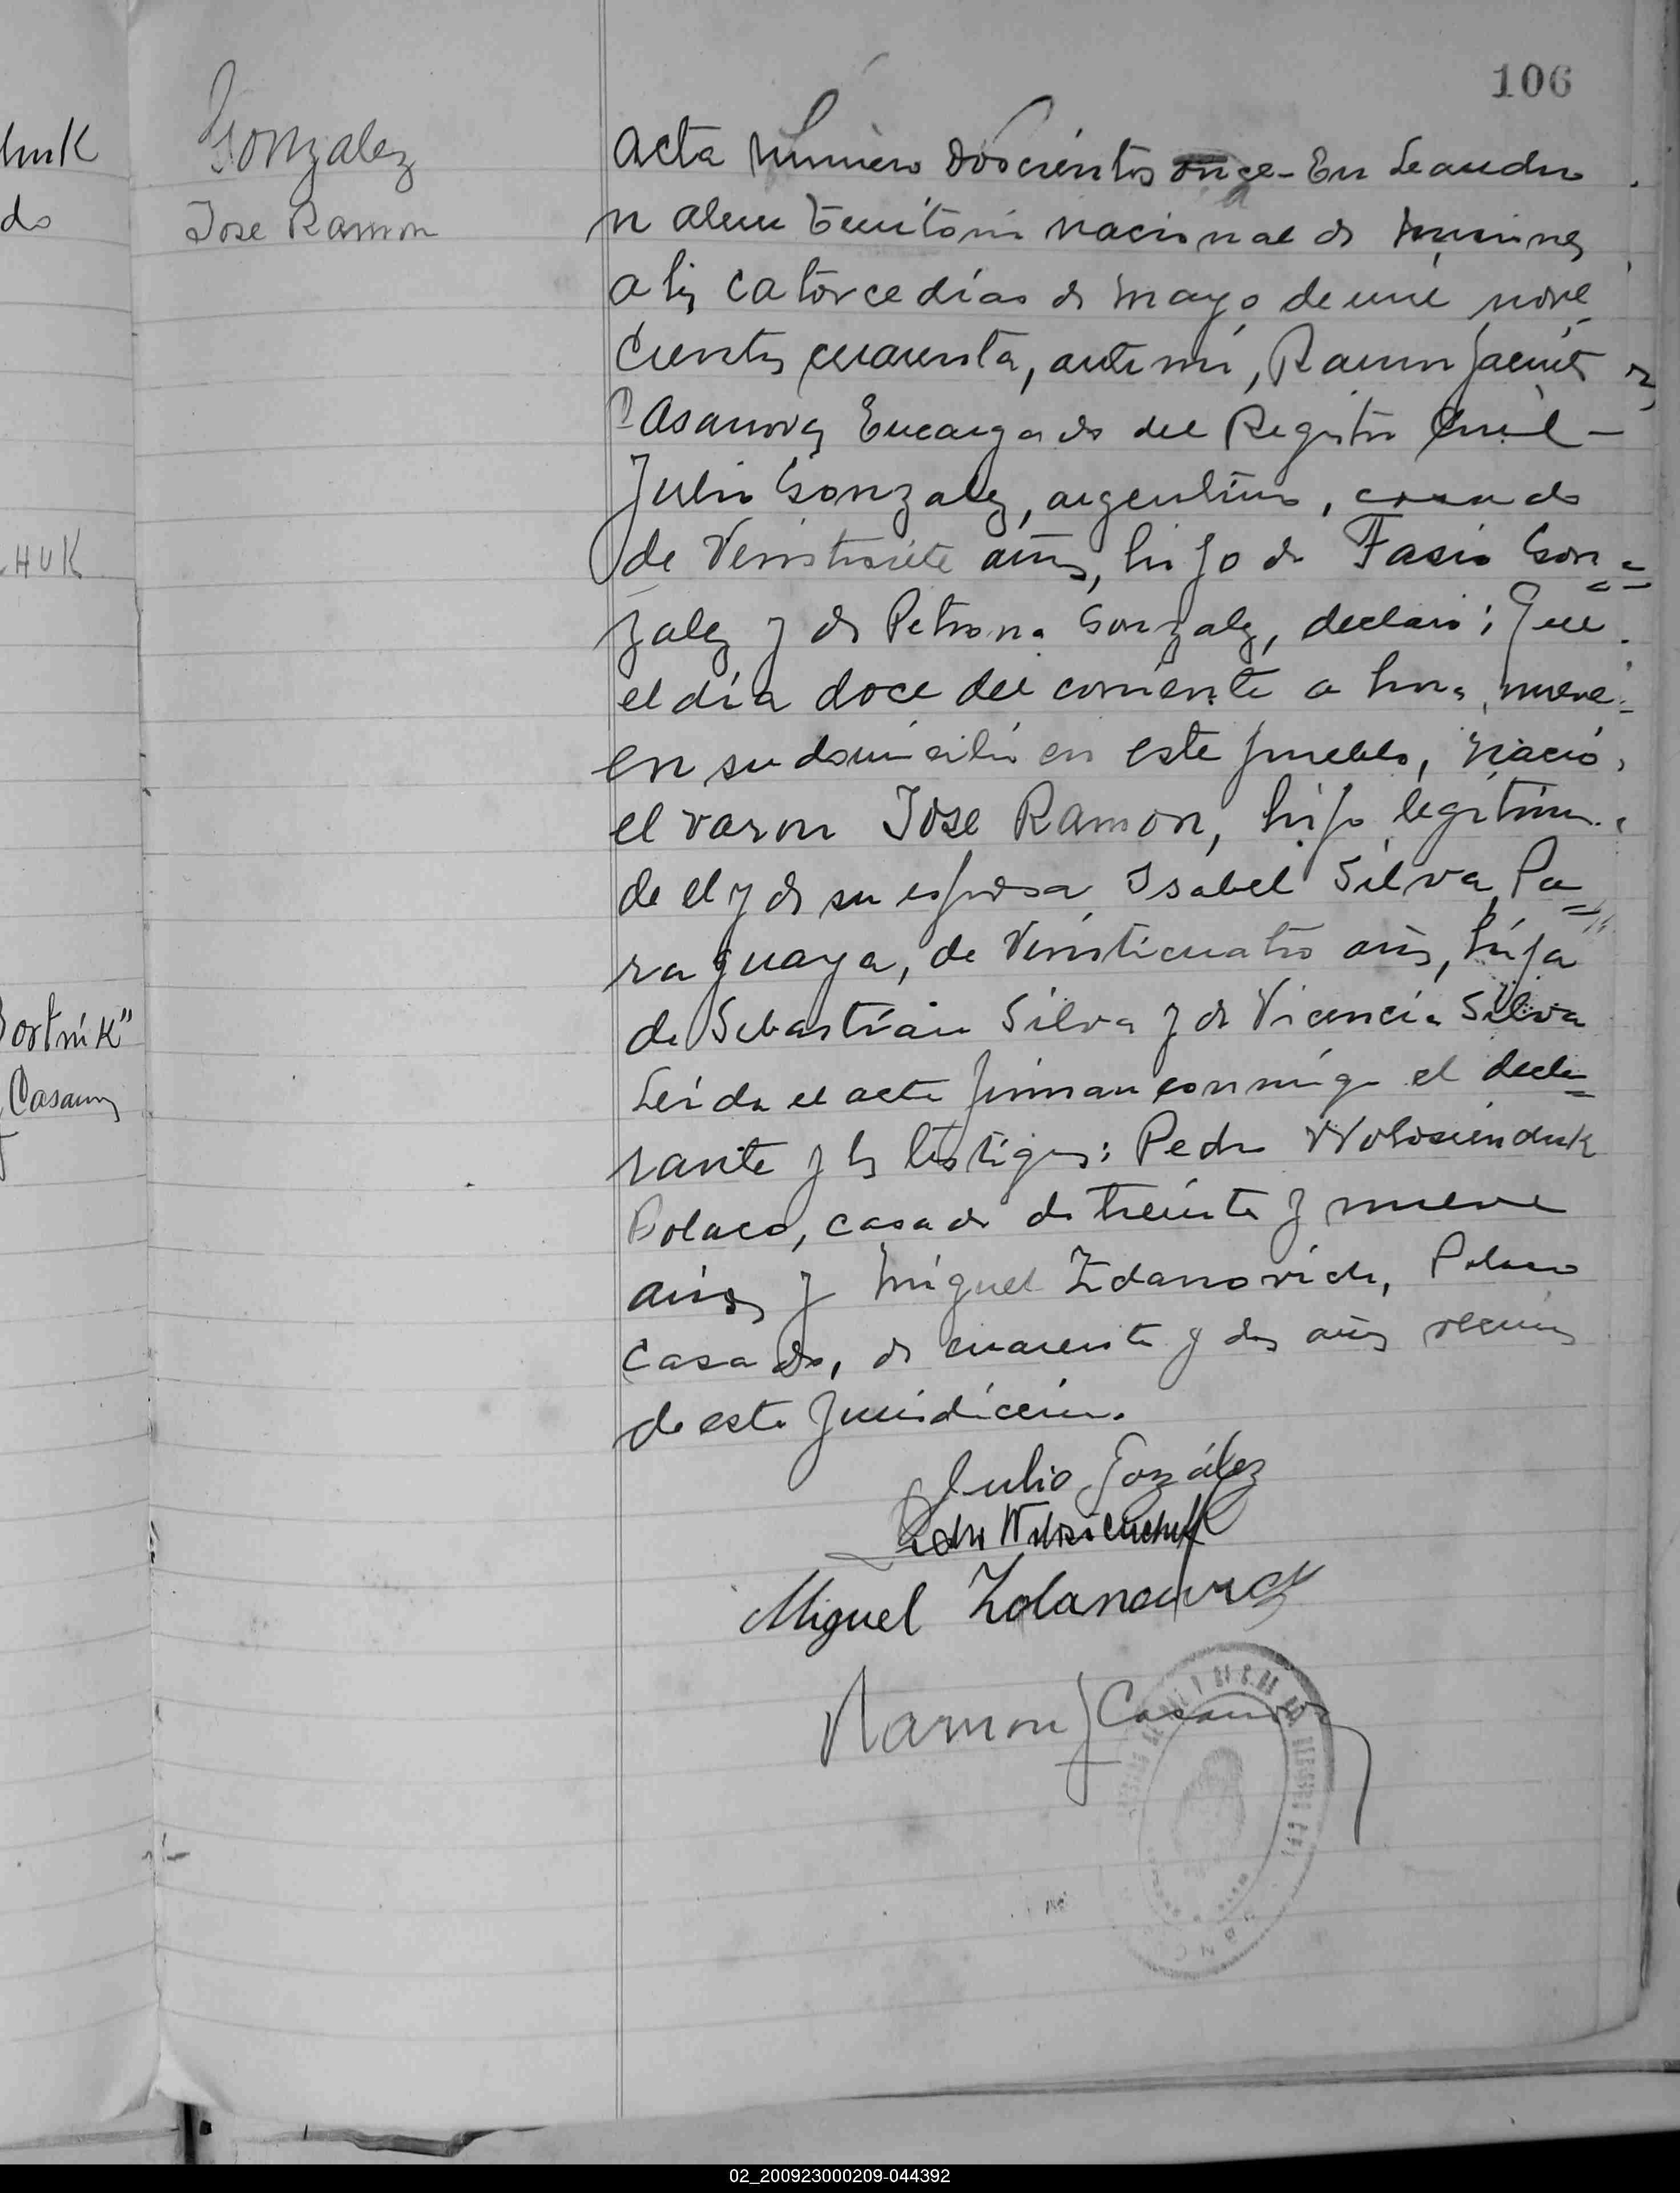 106
Gonzalez
Jose Ramon
Acta Número doscientos onge - En Leandro
N Alem Territorio Nacional de Misiones
a los catorce días de Mayo de mil nove
cientos cuarenta, ante mi, Ramon Jacinto
Casanova Encargado del Registro Civil -
Julio Gonzalez, argentino, casado
de Veintisiete años, hijo de Fasio Gon=
zalez y de Petrona Gonzalez, declaró: Que
el día doce del corriente a horas nueve
en su domicilio en este pueblo, nació
el varon Jose Ramon, hijo legítimo
de el y de su esposa Isabel Silva, Pa=
raguaya, de Veinticuatro años, hija
de Sebastián Silva y de Vicencia Silva
Leída el acta firman conmigo el decla=
rante y los testigos: Pedro Wolosienchuk
Polaco, casado de treinta y nueve
años y Miguel Zdanovich, Polaco
casado, de cuarenta y dos años vecinos
de esta Jurisdicción.
Julio Gozález
Pedro Wolosienchuk
Miguel Zdanowich
Ramon J Casanova
huk
do
CHUK
Bortnik"
Casanova
02_200923000209-044392